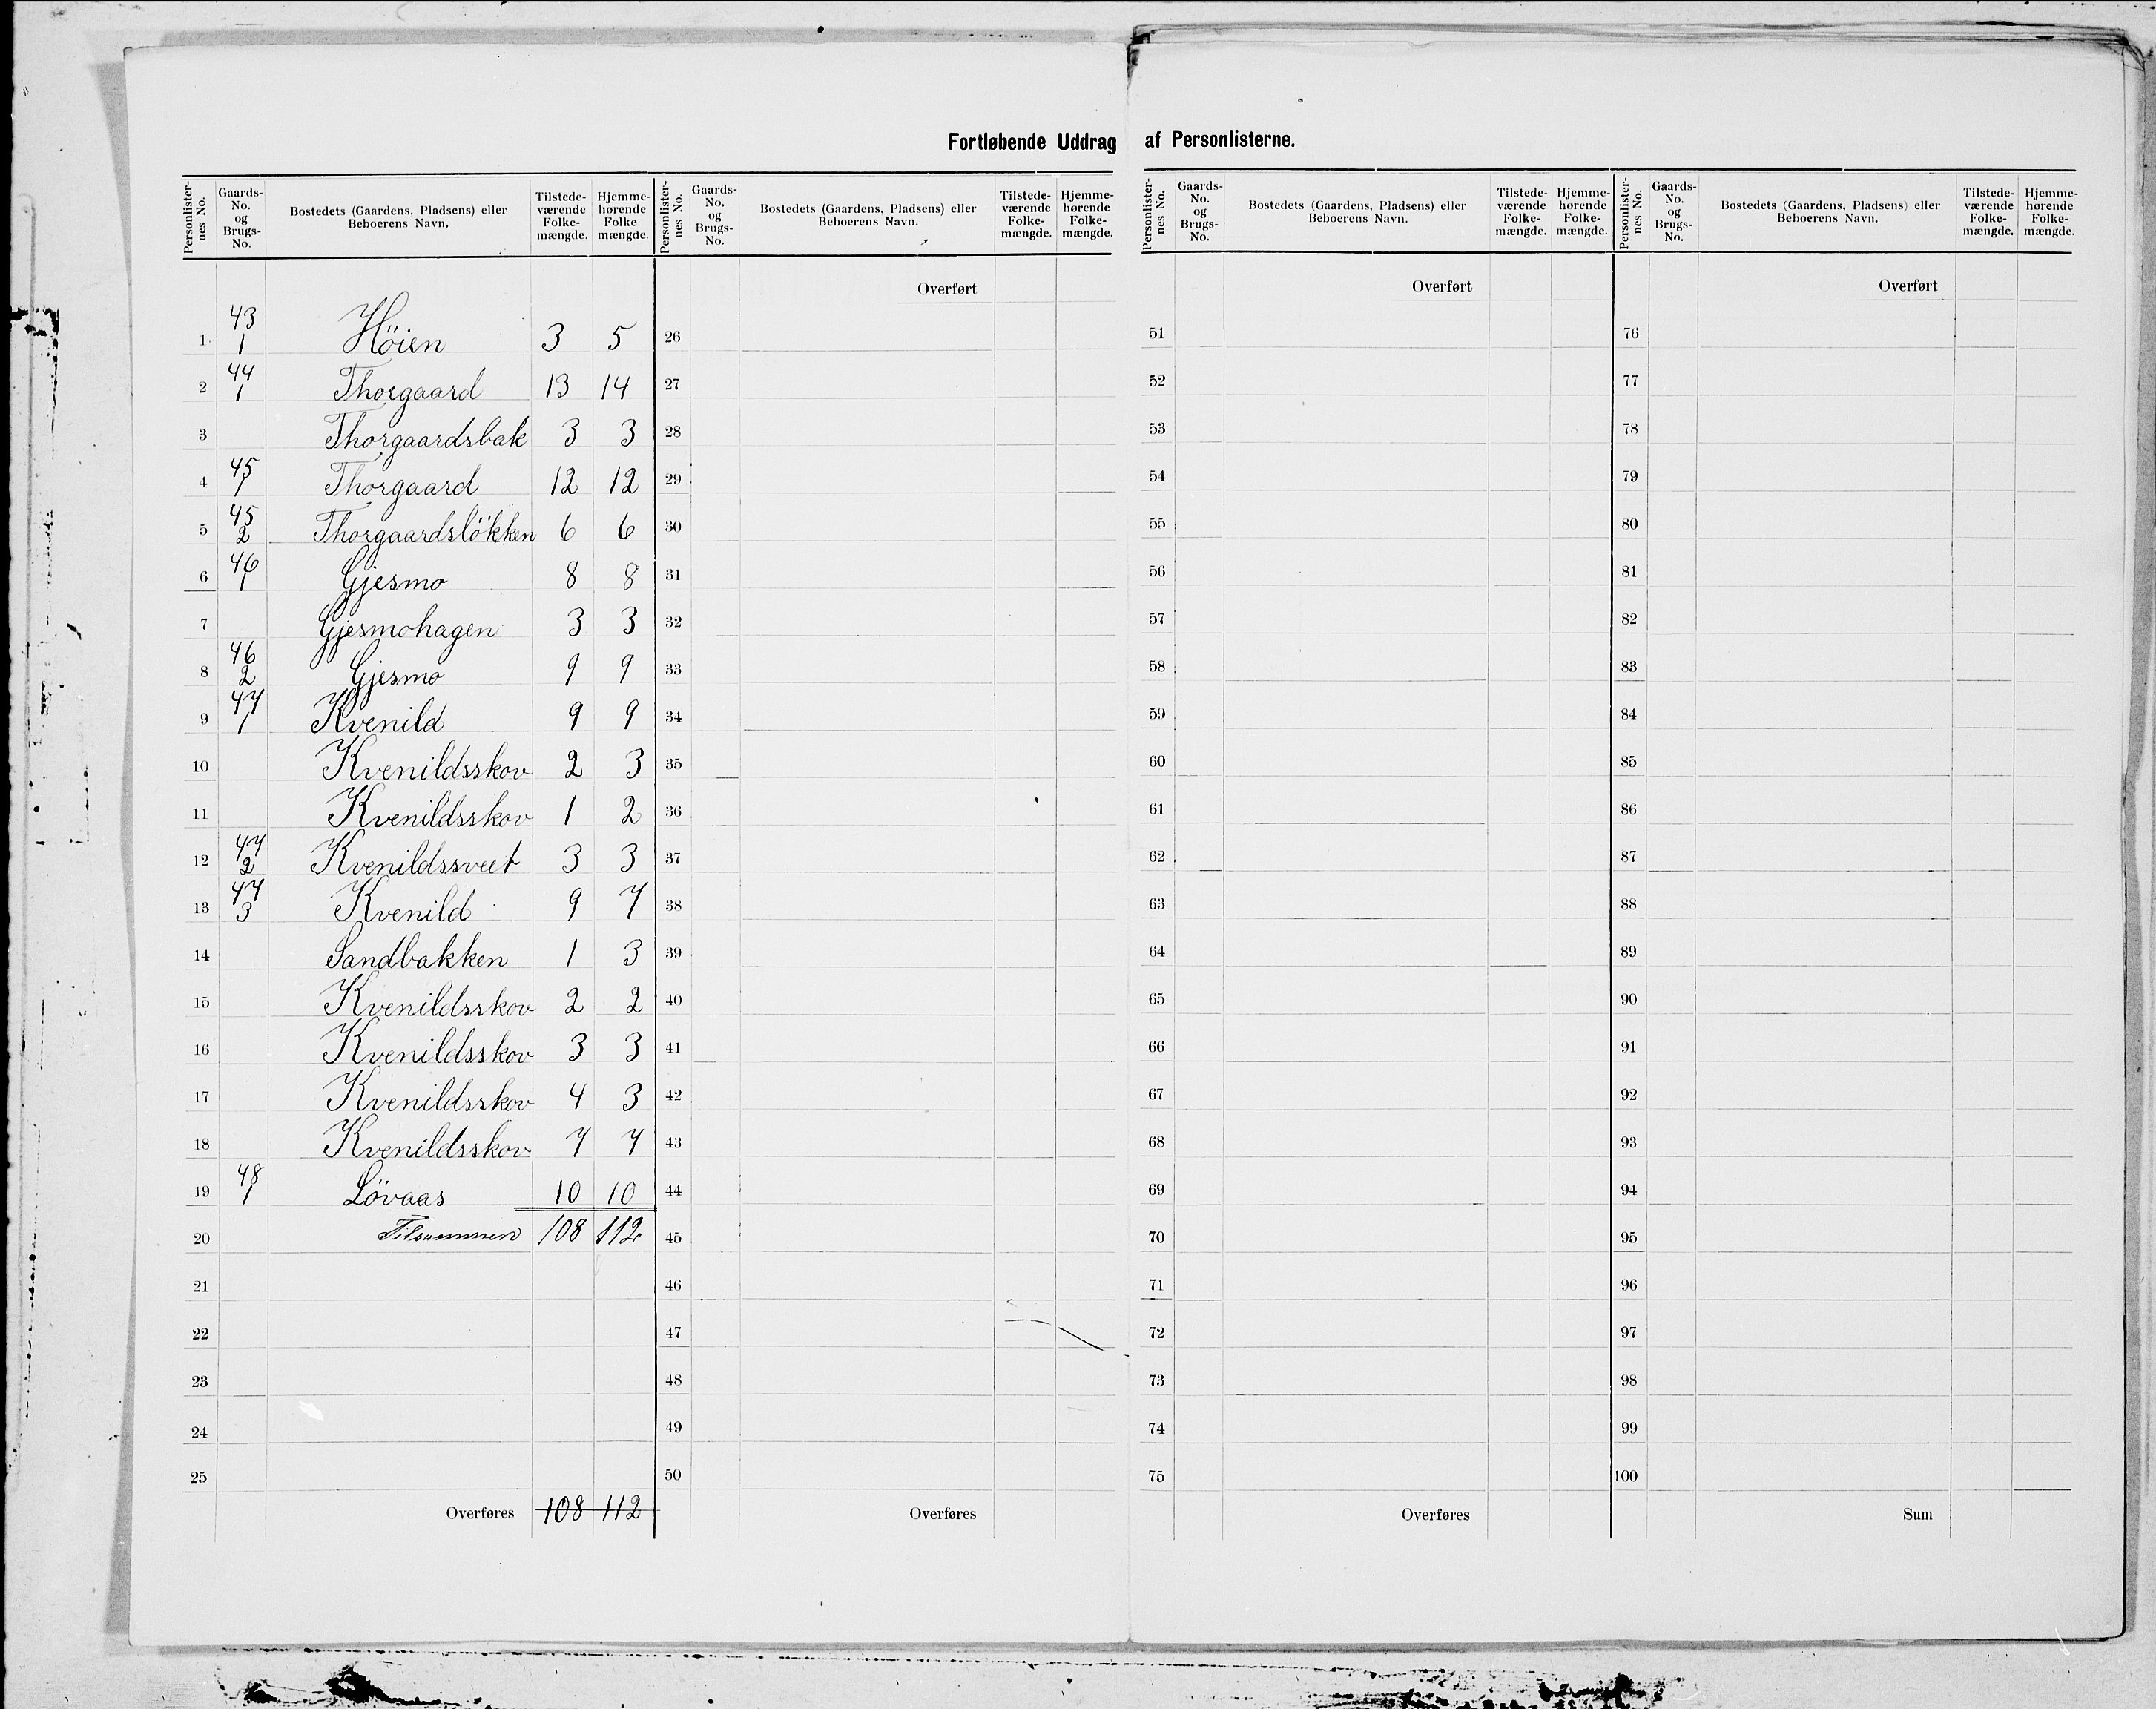 Fortløbende Uddrag af Personlisterne.
Personlister-nes No. | Gaards-No. og Brugs-No. | Bostedets (Gaardens, Pladsens) eller Beboerens Navn. | Tilstede-værende Folke-mængde. | Hjemme-hørende Folke mængde.
1 | 43/1 | Höien | 3 | 5
2 | 44/1 | Thorgaard | 13 | 14
3 | Thorgaardsbak | 3 | 3
4 | 45/1 | Thorgaard | 12 | 12
5 | 45/2 | Thorgaardslökken | 6 | 6
6 | 46/1 | Gjesmo | 8 | 8
7 | Gjesmohagen | 3 | 3
8 | 46/2 | Gjesmo | 9 | 9
9 | 47/1 | Kvenild | 9 | 9
10 | Kvenildsskov | 2 | 3
11 | Kvenildsskov | 1 | 2
12 | 47/2 | Kvenildssveet | 3 | 3
13 | 47/3 | Kvenild | 9 | 7
14 | Sandbakken | 1 | 3
15 | Kvenildsskov | 2 | 2
16 | Kvenildsskov | 3 | 3
17 | Kvenildsskov | 4 | 3
18 | Kvenildsskov | 7 | 7
19 | 48/1 | Lövaas | 10 | 10
20 | Tilsammen | 108 | 112
21
22
23
24
25
Overføres | 108 | 112
Personlister-nes No. | Gaards-No. og Brugs-No. | Bostedets (Gaardens, Pladsens) eller Beboerens Navn. | Tilstede-værende Folke-mængde. | Hjemme-hørende Folke-mængde.
Overført
26
27
28
29
30
31
32
33
34
35
36
37
38
39
40
41
42
43
44
45
46
47
48
49
50
Overføres
Personlister-nes No. | Gaards-No. og Brugs-No. | Bostedets (Gaardens, Pladsens) eller Beboerens Navn. | Tilstede-værende Folke-mængde. | Hjemme-hørende Folke-mængde.
Overført
51
52
53
54
55
56
57
58
59
60
61
62
63
64
65
66
67
68
69
70
71
72
73
74
75
Overføres
Personlister-nes No. | Gaards-No. og Brugs-No. | Bostedets (Gaardens, Pladsens) eller Beboerens Navn. | Tilstede-værende Folke-mængde. | Hjemme-hørende Folke-mængde.
Overført
76
77
78
79
80
81
82
83
84
85
86
87
88
89
90
91
92
93
94
95
96
97
98
99
100
Sum